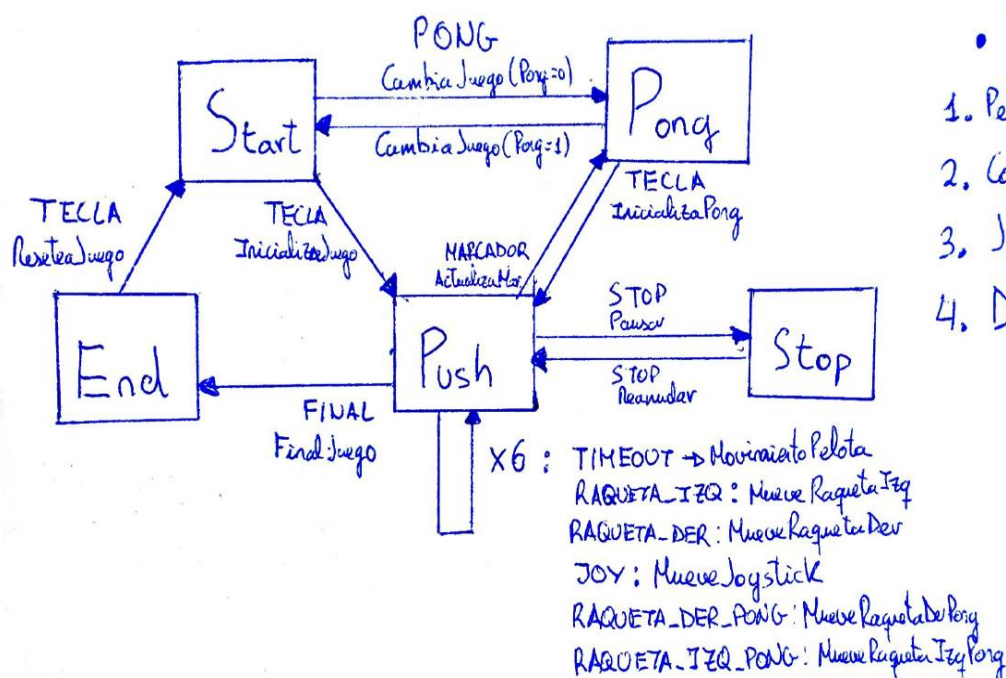 PONG
CambiaJuego(Pong=0)
Start
Pong
CambiaJuego(Pong=1)
TECLA
ReseteaJuego
TECLA
InicializaJuego
MARCADOR
ActualizaMar.
TECLA
InicializaPong
End
Push
STOP
Pausar
STOP
Reanudar
Stop
FINAL
FinalJuego
X6 : TIMEOUT → MovimientoPelota
RAQUETA_IZQ : MueveRaquetaIzq
RAQUETA_DER : MueveRaquetaDer
JOY : MueveJoystick
RAQUETA_DER_PONG : MueveRaquetaDerPong
RAQUETA_IZQ_PONG : MueveRaquetaIzqPong
•
1. Pe
2. Co
3. J
4. D